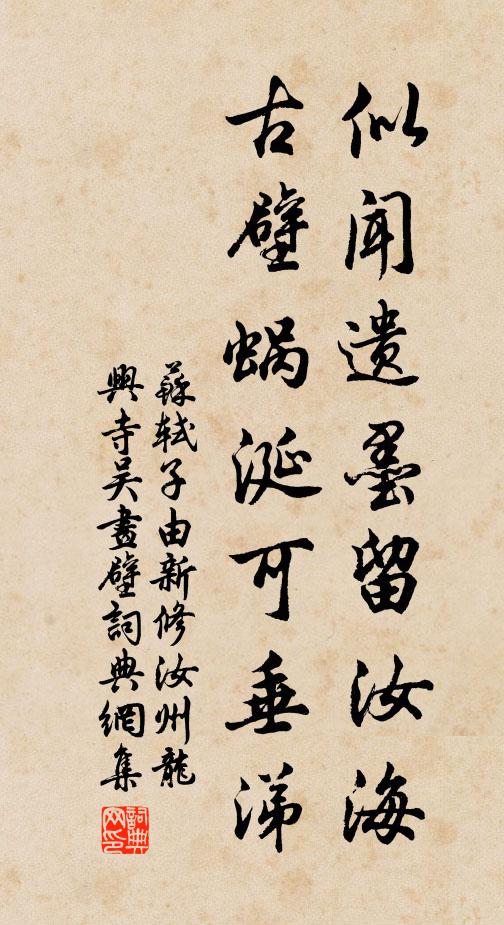 似聞遺墨留汝海
古壁蝸涎可垂涕
蘇軾子由新修汝州龍
興寺吳畫壁詞典網集
詞典
网印